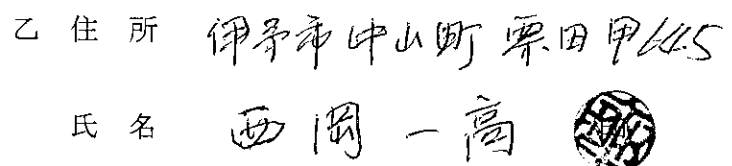 乙 住 所 伊予市中山町栗田甲645
氏 名 西岡一高